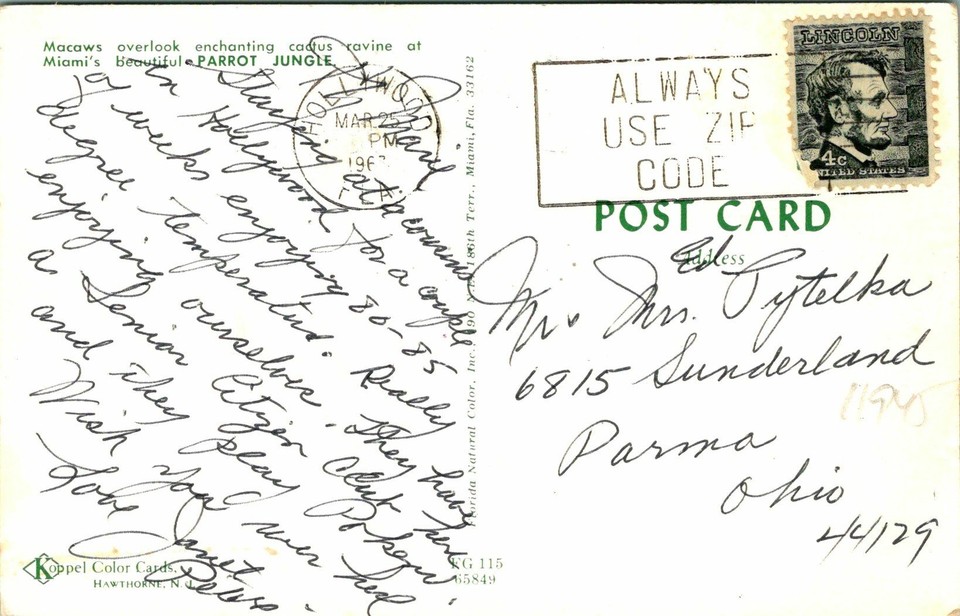 Macaws overlook enchanting cactus ravine at
Miami's beautiful PARROT JUNGLE
Staying at a cousins
in Hollywood for a couple
of weeks enjoying 80-85
degree temperature. Really
enjoying ourselves. They have
a Senior Citizen Club here
and they play Poker.
Wish you were here
Love
Janet
Koppel Color Cards.
HAWTHORNE, N. J.
KG 115
65849
Florida Natural Color, Inc., 186th Terr., Miami, Fla. 33162
HOLLYWOOD
MAR 25
PM
196
ALWAYS
USE ZIP
CODE
LINCOLN
4c
UNITED STATES
POST CARD
Address
Mr. Mrs. Ed Pytelka
6815 Sunderland
Parma
Ohio
44129
11945